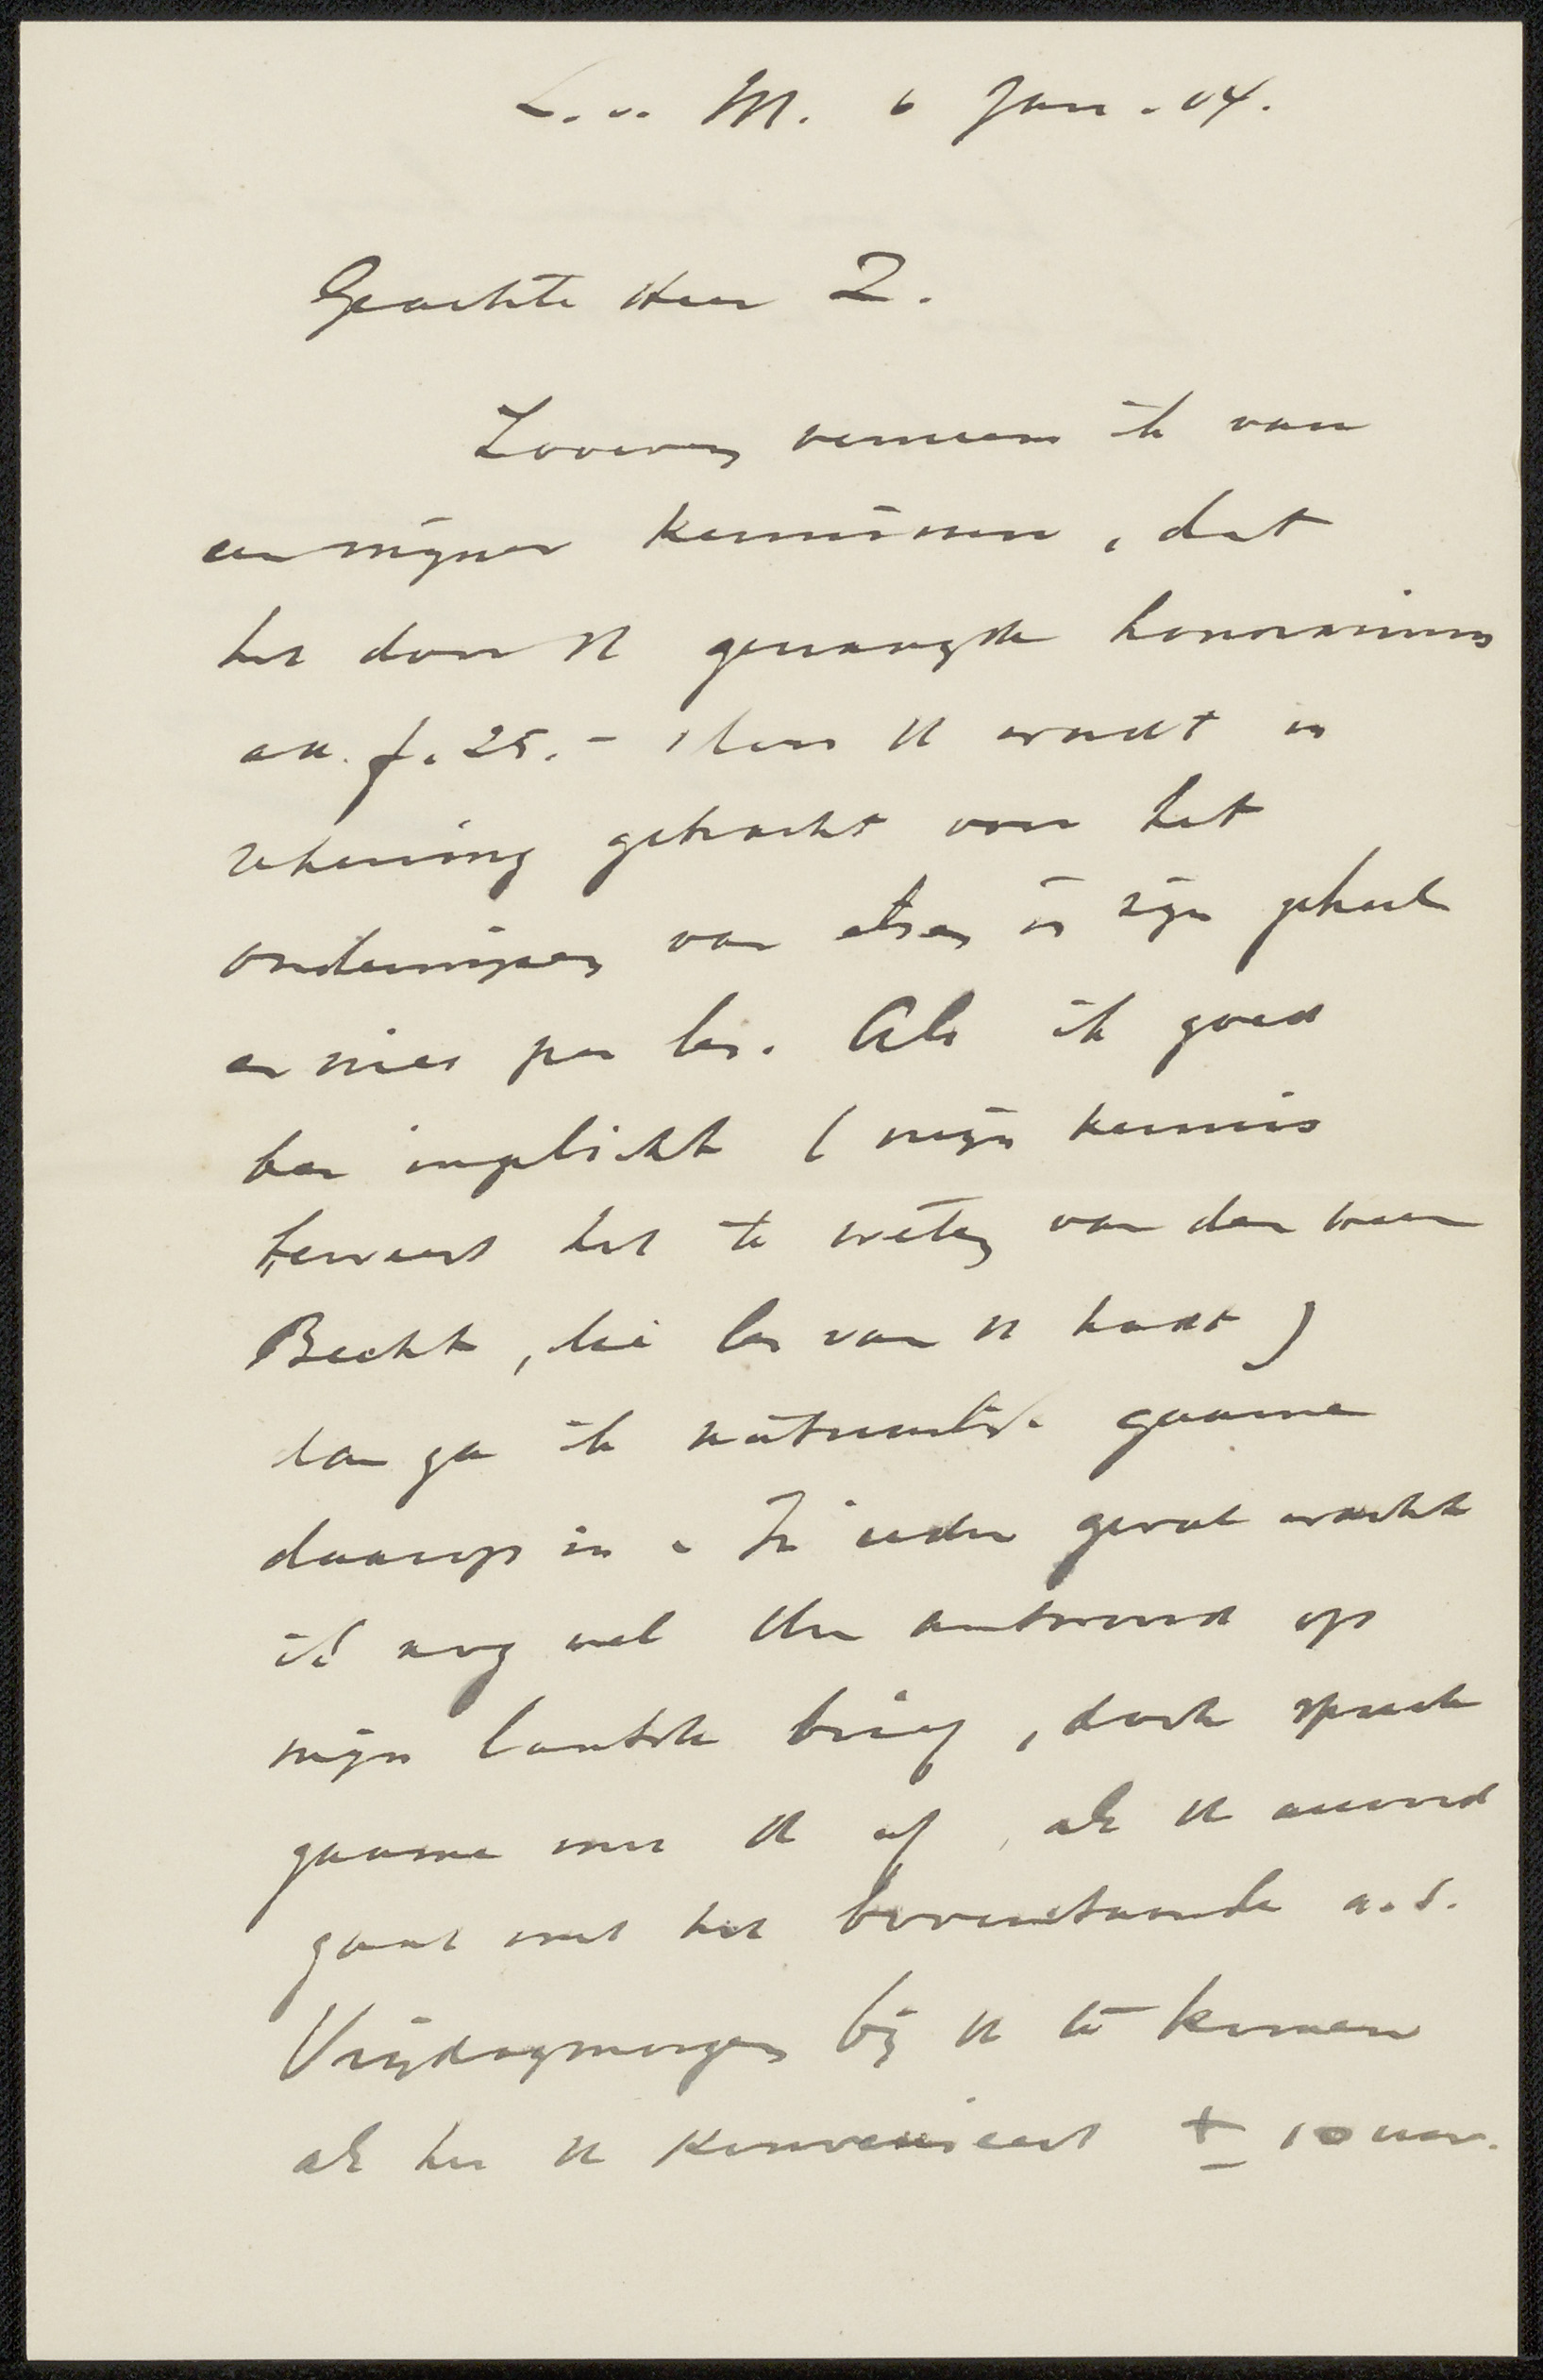 L. v. M. 6 Jan. 04.
Geachte Heer Z.
Zooeven verneem ik van
een mijner kennissen, dat
het door U gevraagde honorarium
ad. f. 25.- door U wordt in
rekening gebracht voor het
onderwijzen van etsen in zijn geheel
en niet per les. Als ik goed
ben ingelicht (mijn kennis
beweert het te weten van den heer
Becht, die les van U hadt)
dan ga ik natuurlijk gaarne
daarop in. In ieder geval wacht
ik nog wel Uw antwoord op
mijn laatste brief, doch spreek
gaarne met U af, als U accoord
gaat met het bovenstaande a.s.
Vrijdagmorgen bij U te komen
als het U konvenieert ± 10 uur.